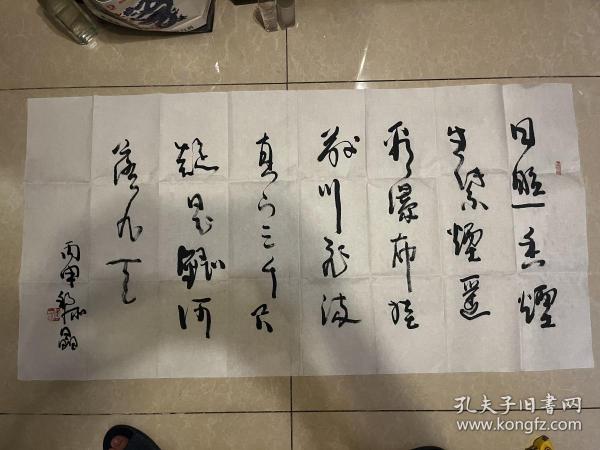 日照香爐
生紫煙遥
看瀑布挂
前川飛流
直下三千尺
疑是銀河
落九天
丙申
孔夫子旧书网
www.kongfz.com